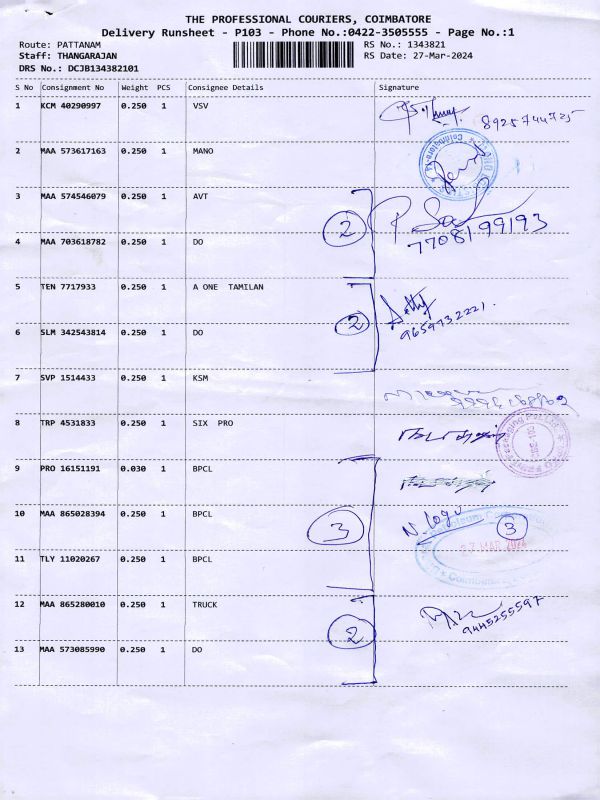 THE PROFESSIONAL COURIERS, COIMBATORE
Delivery Runsheet - P103 - Phone No.:0422-3505555 - Page No.:1
Route: PATTANAM RS No.: 1343821
Staff: THANGARAJAN RS Date: 27-Mar-2024
DRS No.: DCJB134382101
S No Consignment No Weight PCS Consignee Details Signature
1 KCM 40290997 0.250 1 VSV
8925744725
2 MAA 573617163 0.250 1 MANO
3 MAA 574546079 0.250 1 AVT
2
7708199193
4 MAA 703618782 0.250 1 DO
5 TEN 7717933 0.250 1 A ONE TAMILAN
2
9659732221
6 SLM 342543814 0.250 1 DO
7 SVP 1514433 0.250 1 KSM
8 TRP 4531833 0.250 1 SIX PRO
9 PRO 16151191 0.030 1 BPCL
10 MAA 865028394 0.250 1 BPCL
3 3
27 MAR 2024
11 TLY 11020267 0.250 1 BPCL
12 MAA 865280010 0.250 1 TRUCK
9445255597
2
13 MAA 573085990 0.250 1 DO